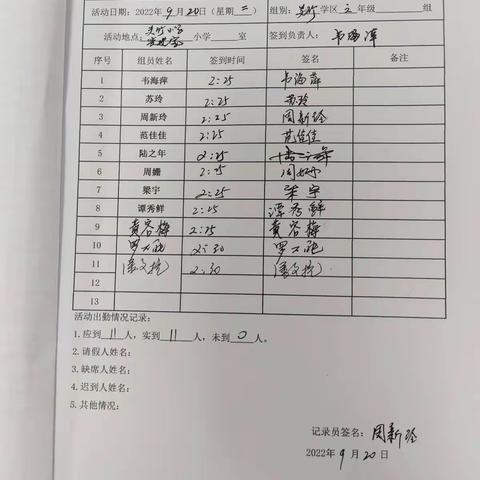 活动日期：2022年9月20日（星期二） 组别：吴圩学区五年级 组
活动地点：吴圩小学 小学 室 签到负责人：韦海萍
序号 组员姓名 签到时间 签名 备注
1 韦海萍 2:25 韦海萍
2 苏玲 2:25 苏玲
3 周新玲 2:25 周新玲
4 范佳佳 2:25 范佳佳
5 陆之年 2:25
6 周姗 2:25 周姗
7 梁宇 2:25 梁宇
8 谭秀鲜 2:25 谭秀鲜
9 黄容梅 2:25 黄容梅
10 2:30
11 2:30
12
13
活动出勤情况记录：
1. 应到 11 人，实到 11 人，未到 0 人。
2. 请假人姓名：
3. 缺席人姓名：
4. 迟到人姓名：
5. 其他情况：
记录员签名：周新玲
2022年 9 月 20 日